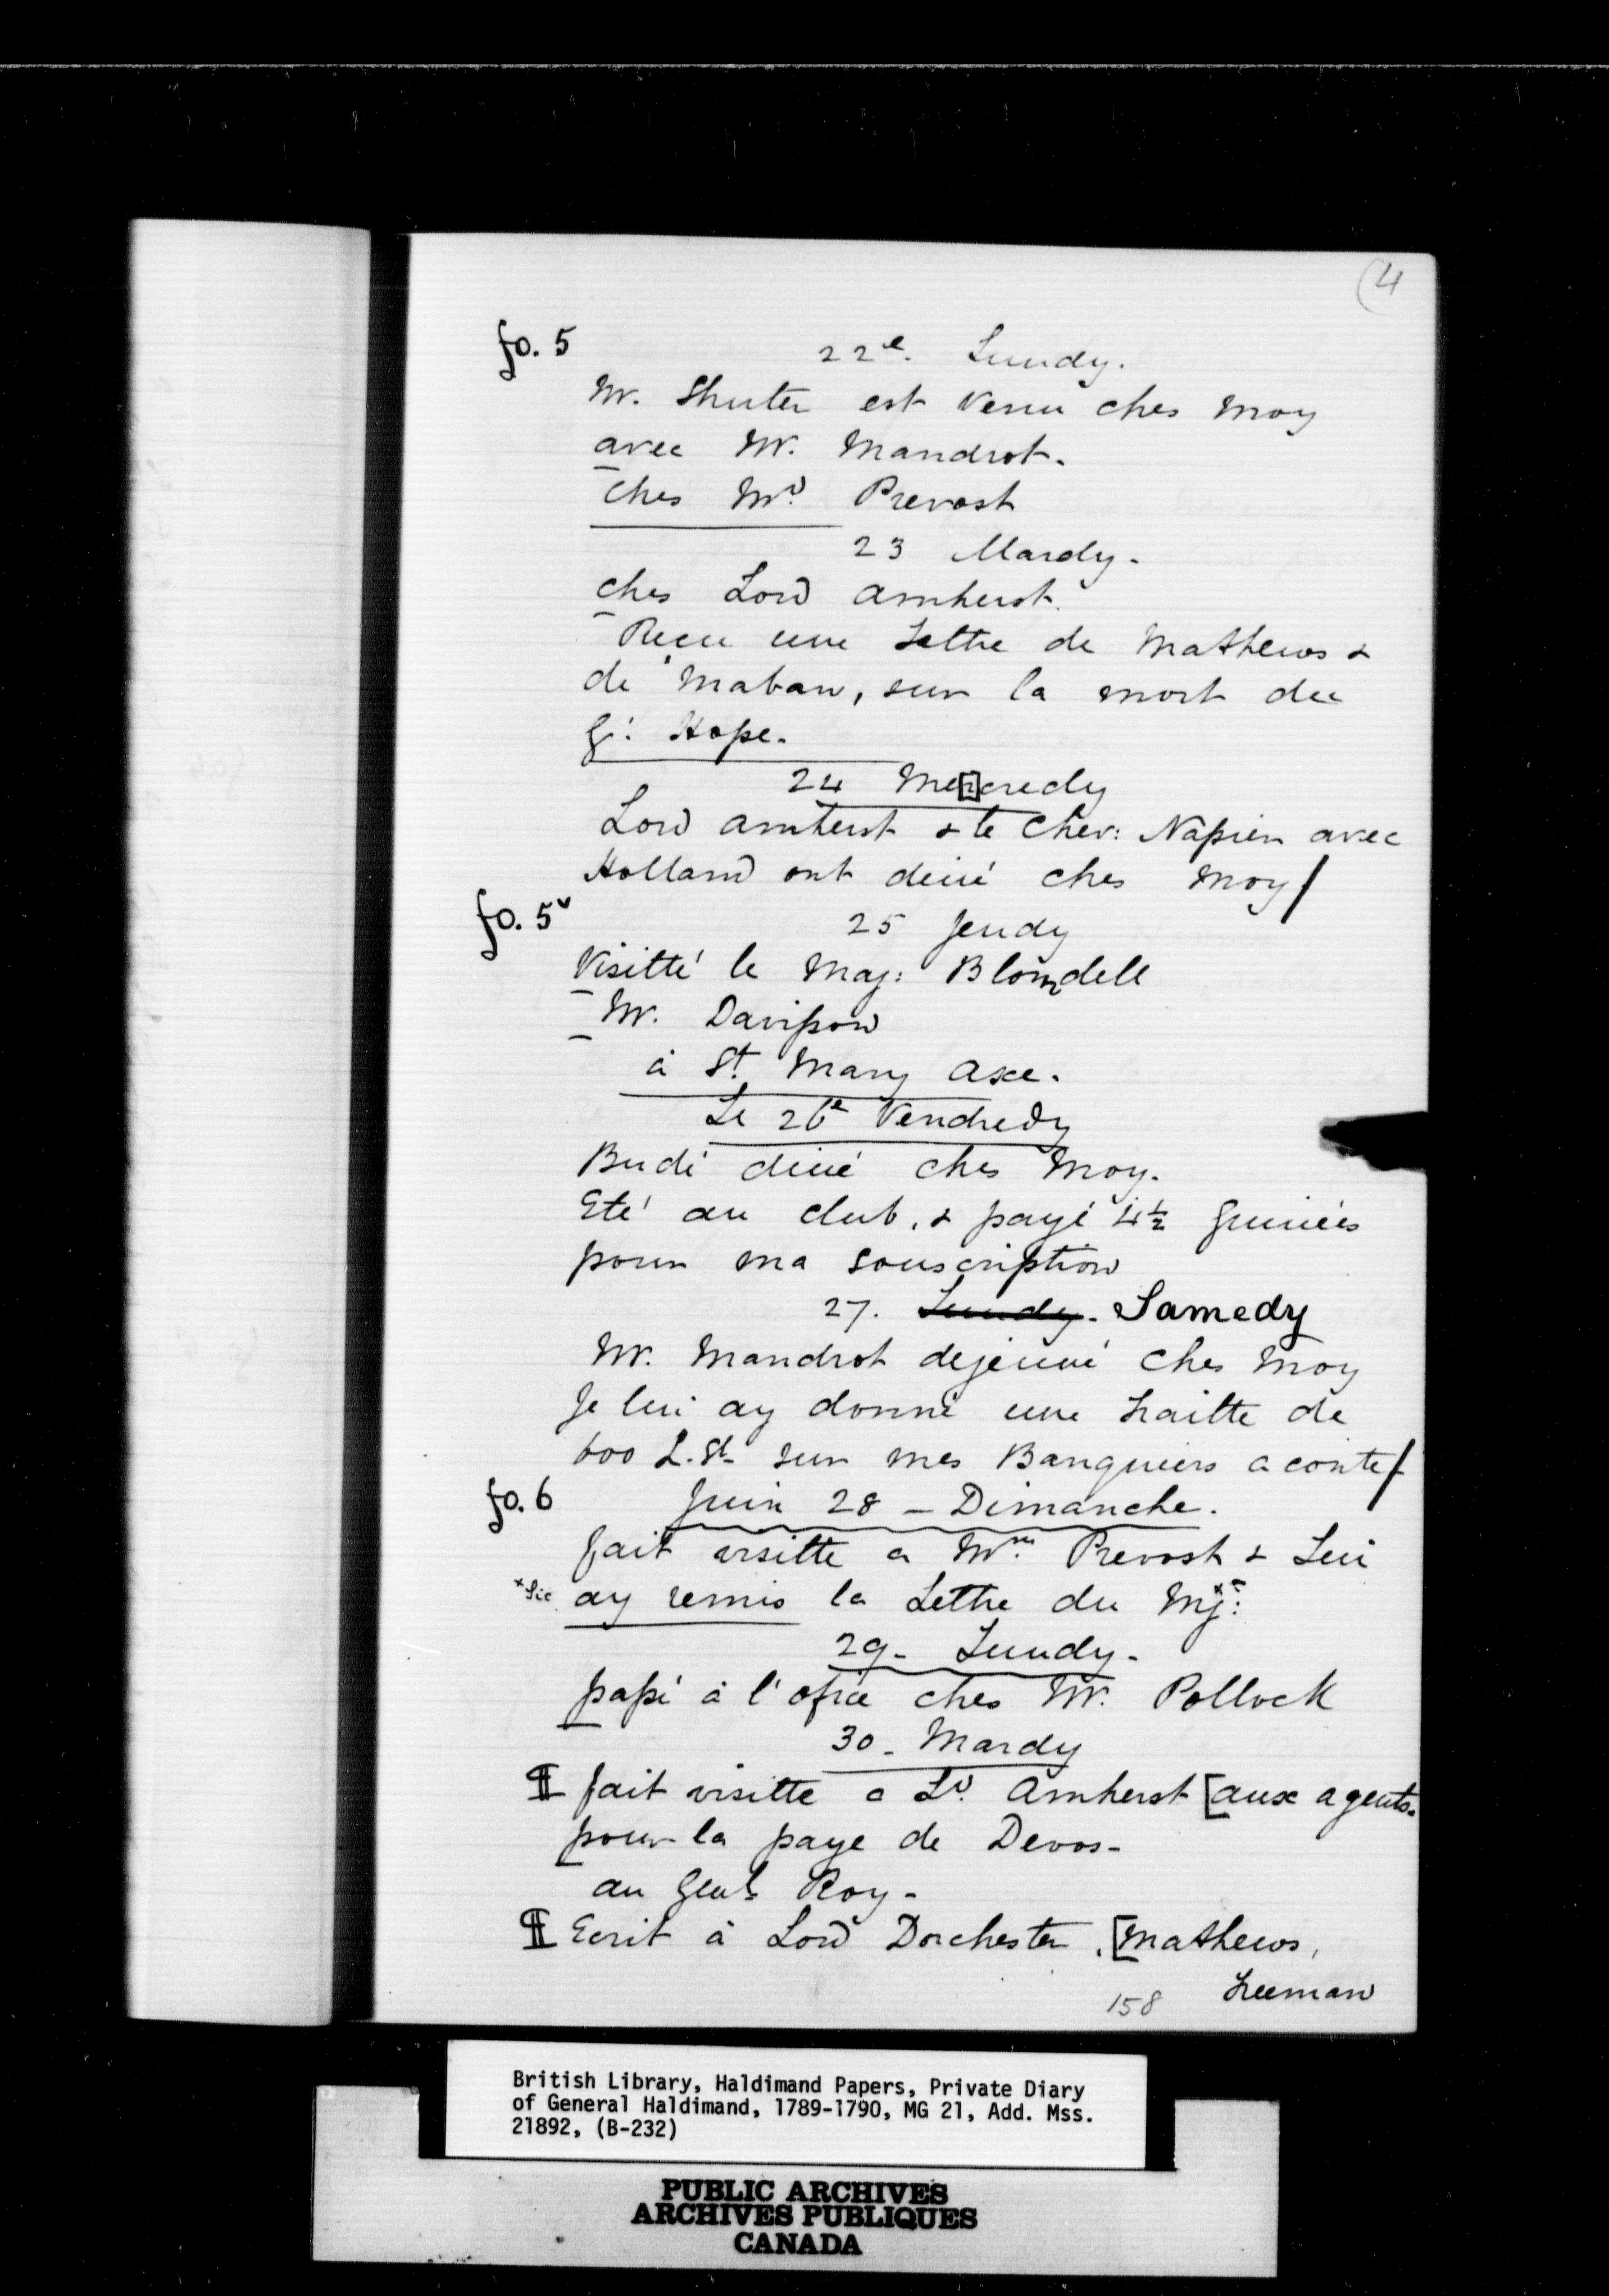 (4
fo. 5
22e. Lundy.
Mr. Shuter est venu ches moy
avec Mr. Mandrot.
ches Md. Prevost
23 Mardy.
ches Lord Amherst.
Recu une Lettre de Mathews &
de Maban, sur la mort du
G: Hope.
24 Me[r]credy
Lord Amherst & le Chev: Napier avec
Holland ont diné ches moy/
fo. 5v
25 Jeudy
Visitté le Maj: Blomdell
Mr. Davisson
à St. Mary Axe.
Le 26e Vendredy
Budé diné ches Moy.
Eté au club, & payé 4½ Guinées
pour ma souscription
27. Lundy. Samedy
Mr. Mandrot dejeuné ches Moy
Je lui ay donné une traitte de
600 L. St. sur mes Banquiers a conte/
fo. 6
Juin 28 - Dimanche.
fait visitte a Mm. Prevost & Lui
*Sic ay remis la Lettre du Mj*:
29 - Lundy.
passé à l'ofice ches Mr. Pollock
30 - Mardy
¶ fait visitte a Ld. Amherst [aux agents.
pour la paye de Devos -
au Genl. Roy -
¶ Ecrit à Lord Dorchester, [Mathews,
158 Freeman
British Library, Haldimand Papers, Private Diary
of General Haldimand, 1789-1790, MG 21, Add. Mss.
21892, (B-232)
PUBLIC ARCHIVES
ARCHIVES PUBLIQUES
CANADA